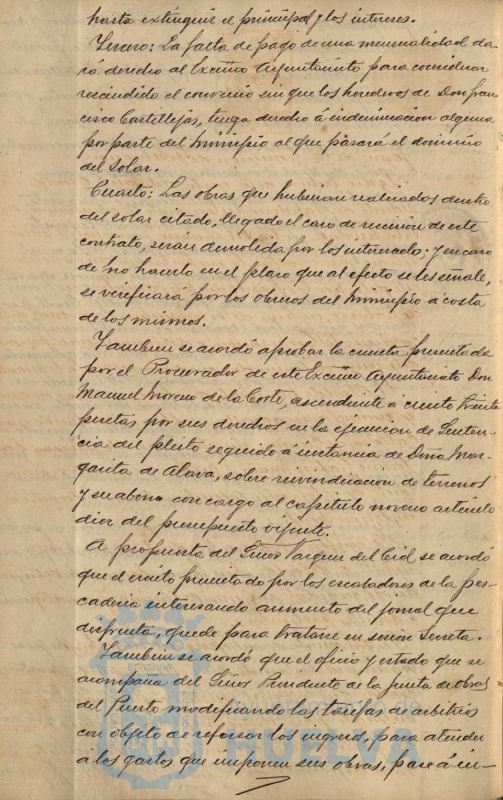 hasta extinguir el principal y los intereses.
Tercero: La falta de pago de una mensualidad da-
rá derecho al Excmo Ayuntamiento para considerar
rescindido el convenio sin que los herederos de Don Fran
cisco Castillejas, tenga derecho á indemnización alguna
por parte del Municipio al que pasará el dominio
del solar.
Cuarto: Las obras que hubieran realizados dentro
del solar citado, llegado el caso de rescisión de este
contrato, serán demolida por los interesados. y en caso
de no hacerlo en el plazo que al efecto se les señale,
se verificará por los obreros del Municipio á costa
de los mismos.
Tambien se acordó aprobar la cuenta presentada
por el Procurador de este Excmo Ayuntamiento Don
Manuel Moreno de la Corte, ascendente á ciento treinta
pesetas por sus derechos en la ejecucion de Senten-
cia del pleito seguido á instancia de Doña Mar-
garita de Alava, sobre reivindicacion de terrenos
y su abono con cargo al capitulo noveno articulo
diez del presupuesto vijente.
A propuesta del Señor Vazquez del Cid se acordó
que el escrito presentado por los escaladores de la pes-
caderia interesando aumento del jornal que
disfruta, quede para tratarse en sesion secreta.
Tambien se acordó que el oficio y estado que se
acompaña del Señor Presidente de la Junta de obras
del Puerto modificando las tarifas de arbitrios
con objeto de reforsar los ingresos, para atender
a los gastos que imponen sus obras, pase á in-
HUELVA